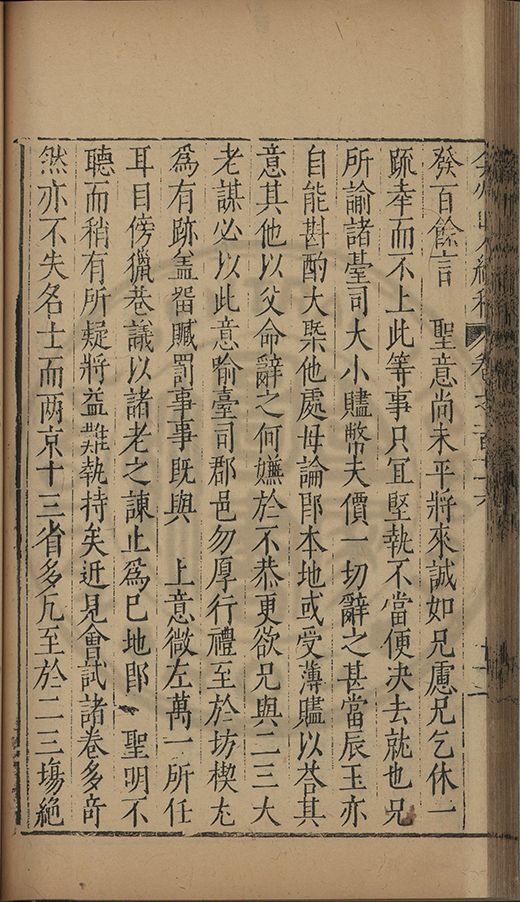 弇州山人續稿 卷之一百七十六 十二
發百餘言　聖意尚未平將來誠如兄慮兄乞休一
疏幸而不上此等事只宜堅執不當便决去就也兄
所諭諸臺司大小賻幣夫價一切辭之甚當辰玉亦
自能斟酌大槩他處毋論郎本地或受薄賻以荅其
意其他以父命辭之何嫌於不恭更欲兄與二三大
老謀必以此意喻臺司郡邑勿厚行禮至於坊楔尤
爲有跡盖畱贓罰事事既與　上意微左萬一所任
耳目傍獵巷議以諸老之諫止爲已地郎　聖明不
聽而稍有所疑將益難執持矣近見會試諸卷多竒
然亦不失名士而两京十三省多凡至於二三塲絶